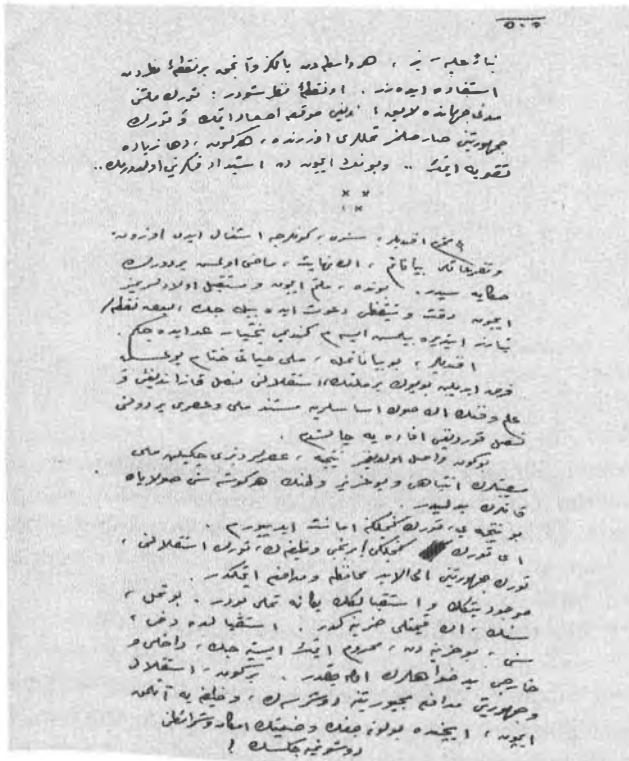 ٥٠٥
بناءً عليه، بز، هر واسطه‌دن يالكز و آنجق بر نقطهٔ نظردن
استفاده ايده‌رز. او نقطهٔ نظر شودر: تورك ملتنى
مدنى جهانده لايق اولديغى موقعه اصعاد ايتمك و تورك
جمهوريتنى صارصلماز تمللرى اوزرنده، هركون، دها زياده
تقويه ايتمك .. و بونك ايچون ده استبداد فكرينى اولدورمك ..
× ×
×
افنديلر، سزى، كونلرجه اشغال ايدن اوزون
و تفرعاتلى بياناتم، الك نهايت، ماضى اولمش بر دورك
حكايه سيدر. بونده، ملتم ايچون و مستقبل اولادلريمز
ايچون دقت و تيقظى دعوت ايده بيله جك، بعض نقطه‌لر
تبارز ايتديره بيلمش ايسه‌م كنديمى بختيار عد ايده جكم.
افنديلر، بو بياناتمله، ملى حياتى ختام بولمش
فرض ايديلن بويوك بر ملتك، استقلالنى نصل قازانديغنى و
علم و فنك الك صوك اساسلرينه مستند ملى و عصرى بر دولتى
نصل قورديغنى افاده يه چاليشدم.
بوكون واصل اولديغمز نتيجه، عصرلردنبرى چكيلن ملى
مصيبتلرك انتباهى و بو عزيز وطنك هر كوشه سنى صولايان
قانلرك بدليدر.
بو نتيجه يى، تورك كنجلكنه امانت ايدييورم
اى تورك كنجلكى! برنجى وظيفه‌ك، تورك استقلالنى،
تورك جمهوريتنى الى الابد محافظه و مدافعه ايتمكدر.
موجوديتكك و استقبالكك يكانه تملى بودر. بو تمل،
سنك الك قيمتلى خزينه كدر. استقبالده دخى،
سنى، بو خزينه دن، محروم ايتمك ايسته يه جك، داخلى و
خارجى بدخواهلرك اوله جقدر. بر كون، استقلال
و جمهوريتى مدافعه مجبوريتنه دوشرسه‌ك، وظيفه يه آتيلمق
ايچون، ايچنده بولونه جغك وضعيتك امكان و شرائطنى
دوشونميه جكسك!